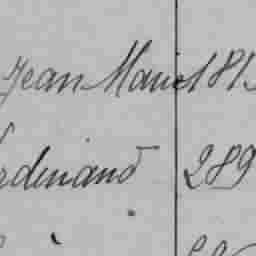 Jean Marie 181
rdinand 289